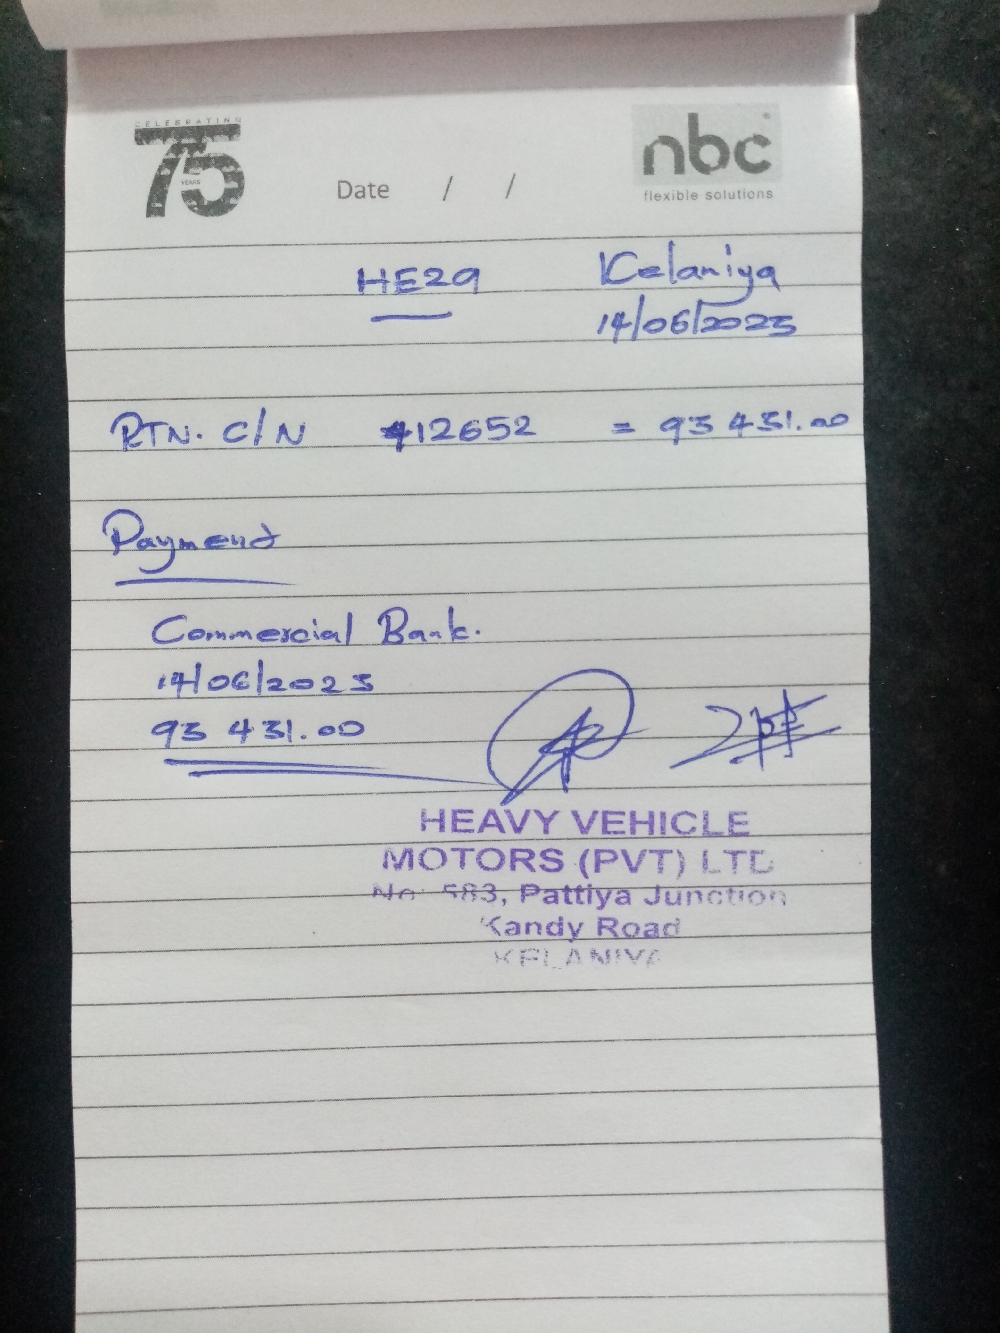 CELEBRATING
75
YEARS
Date / /
nbc
flexible solutions
HE29 Kelaniya
14/06/2023
RTN. C/N 412652 = 93 431.00
Payment
Commercial Bank.
14/06/2023
93 431.00
HEAVY VEHICLE
MOTORS (PVT) LTD
No: 583, Pattiya Junction
Kandy Road
KELANIYA